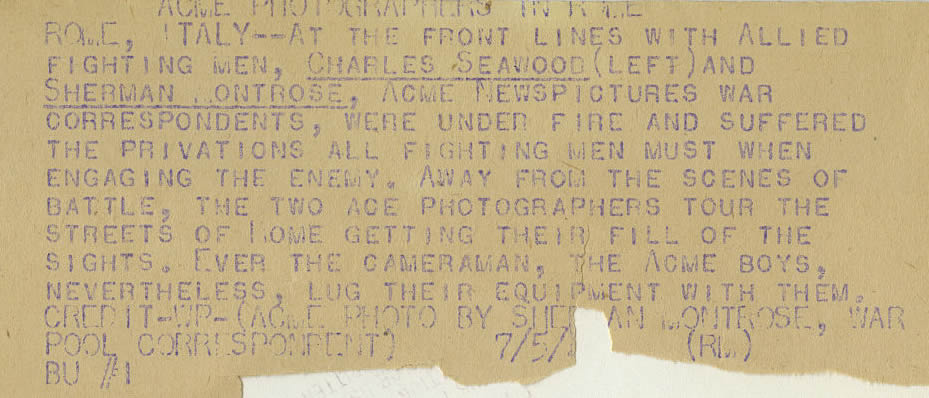 ACME PHOTOGRAPHERS IN ROME
ROME, ITALY--AT THE FRONT LINES WITH ALLIED
FIGHTING MEN, CHARLES SEAWOOD(LEFT)AND
SHERMAN MONTROSE, ACME NEWSPICTURES WAR
CORRESPONDENTS, WERE UNDER FIRE AND SUFFERED
THE PRIVATIONS ALL FIGHTING MEN MUST WHEN
ENGAGING THE ENEMY. AWAY FROM THE SCENES OF
BATTLE, THE TWO ACE PHOTOGRAPHERS TOUR THE
STREETS OF ROME GETTING THEIR FILL OF THE
SIGHTS. EVER THE CAMERAMAN, THE ACME BOYS,
NEVERTHELESS, LUG THEIR EQUIPMENT WITH THEM.
CREDIT-WP-(ACME PHOTO BY SHERMAN MONTROSE, WAR
POOL CORRESPONDENT) 7/5/ (RM)
BU #1